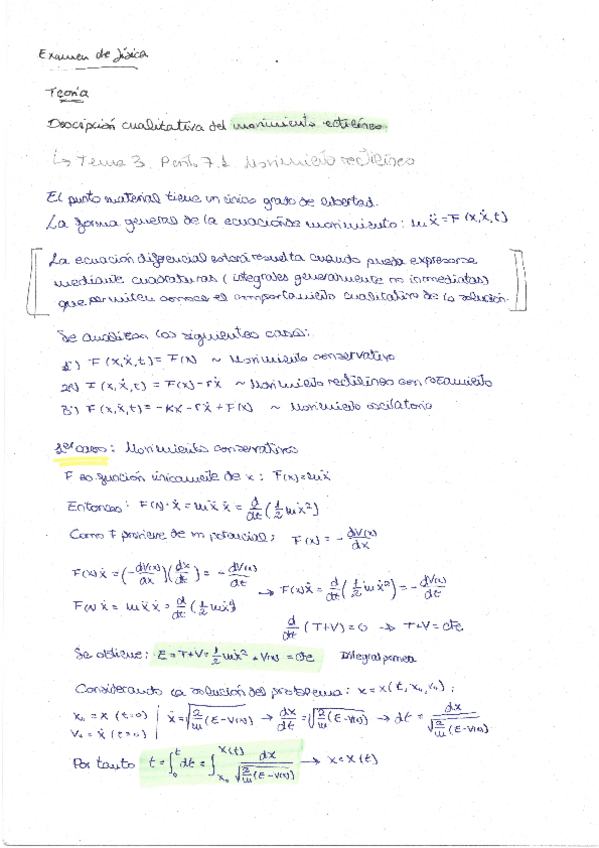 Examen de física
Teoría
Descripción cualitativa del movimiento rectilíneo.
↳ Tema 3. Punto 7.1 Movimiento rectilíneo
El punto material tiene un único grado de libertad.
La forma general de la ecuación de movimiento: mẍ = F(x,ẋ,t)
La ecuación diferencial estará resuelta cuando pueda expresarse
mediante cuadraturas (integrales generalmente no inmediatas)
que permiten conocer el comportamiento cualitativo de la solución.
Se analizan los siguientes casos:
1º) F(x,ẋ,t) = F(x) ~ Movimiento conservativo
2º) F(x,ẋ,t) = F(x) - rẋ ~ Movimiento rectilíneo con rozamiento
3º) F(x,ẋ,t) = -Kx - rẋ + F(x) ~ Movimiento oscilatorio
1er caso: Movimiento conservativo
F es función únicamente de x: F(x) = mẍ
Entonces: F(x)·ẋ = mẍẋ = d/dt (1/2 mẋ²)
Como F proviene de un potencial: F(x) = - dV(x)/dx
F(x)ẋ = (-dV(x)/dx)(dx/dt) = - dV(x)/dt
→ F(x)ẋ = d/dt (1/2 mẋ²) = - dV(x)/dt
F(x)ẋ = mẍẋ = d/dt (1/2 mẋ²)
d/dt (T+V) = 0 → T+V = cte
Se obtiene: E = T+V = 1/2 mẋ² + V(x) = cte Integral primera
Considerando la solución del problema: x = x(t, x₀, v₀):
x₀ = x (t=0) | ẋ = √(2/m (E-V(x))) → dx/dt = √(2/m (E-V(x))) → dt = dx/√(2/m (E-V(x)))
v₀ = ẋ (t=0)
Por tanto t = ∫₀ᵗ dt = ∫ₓ₀^x(t) dx/√(2/m (E-V(x))) → x = x(t)